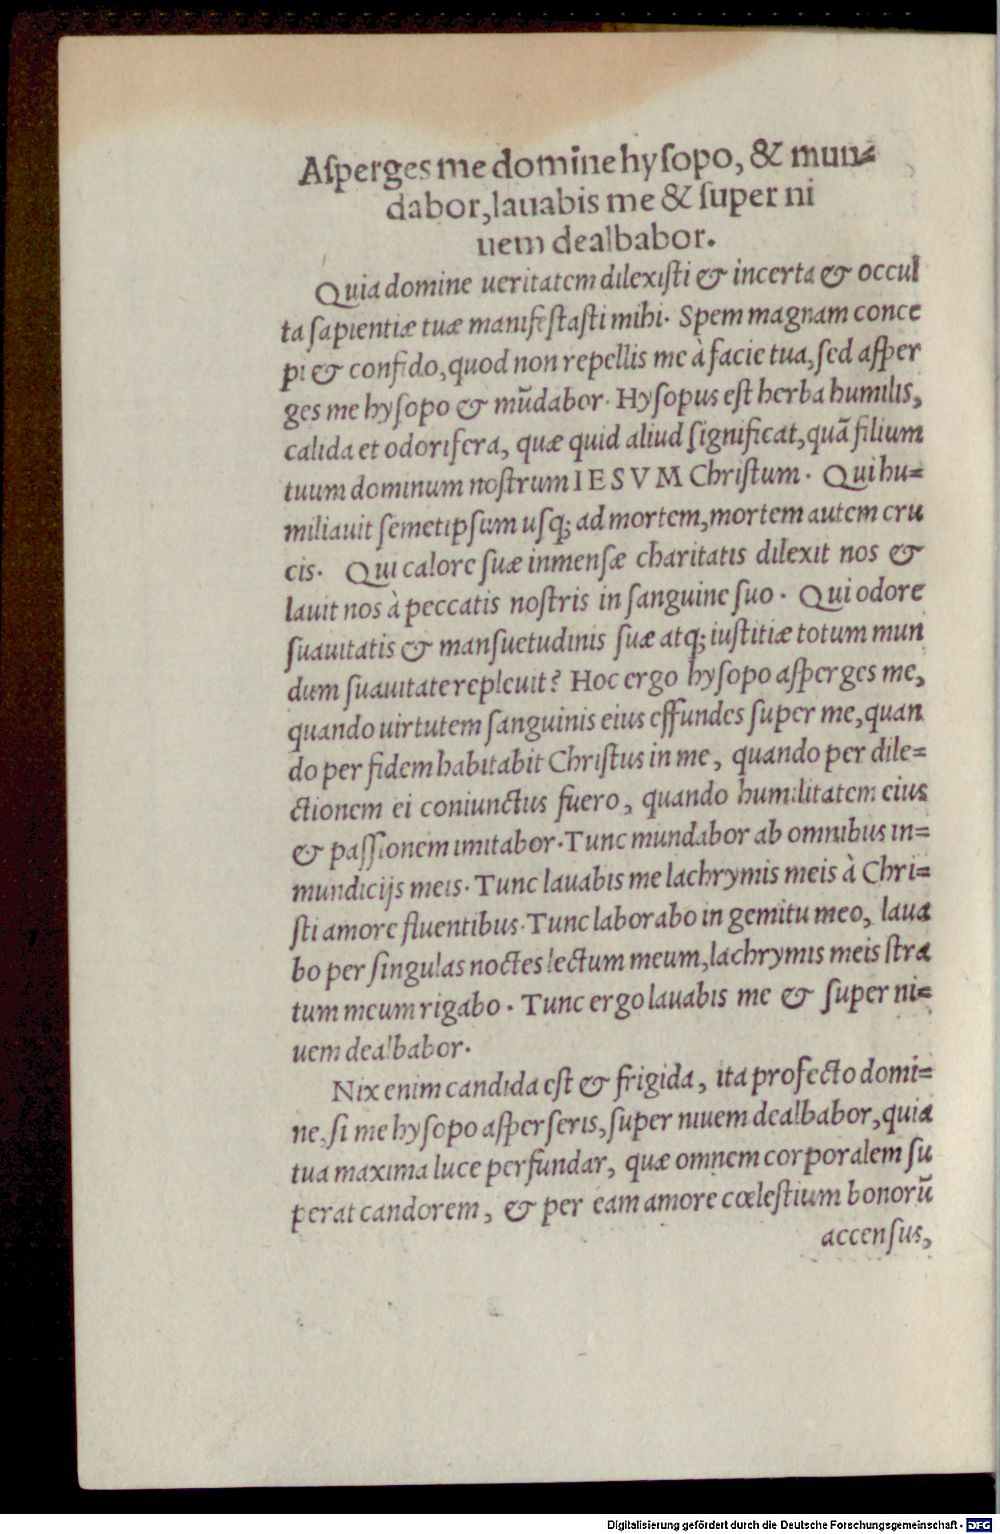 Aſperges me domine hyſopo, & mun⸗
dabor, lauabis me & ſuper ni
uem dealbabor.
Quia domine ueritatem dilexiſti & incerta & occul
ta ſapientiæ tuæ manifeſtaſti mihi. Spem magnam conce
pi & confido, quod non repellis me à facie tua, ſed aſper
ges me hyſopo & mũdabor. Hyſopus eſt herba humilis,
calida et odorifera, quæ quid aliud ſignificat, quã filium
tuum dominum noſtrum IESVM Chriſtum. Qui hu⸗
miliauit ſemetipſum uſq; ad mortem, mortem autem cru
cis. Qui calore ſuæ inmenſæ charitatis dilexit nos &
lauit nos à peccatis noſtris in ſanguine ſuo. Qui odore
ſuauitatis & manſuetudinis ſuæ atq; iuſtitiæ totum mun
dum ſuauitate repleuit? Hoc ergo hyſopo aſperges me,
quando uirtutem ſanguinis eius effundes ſuper me, quan
do per fidem habitabit Chriſtus in me, quando per dile⸗
ctionem ei coniunctus fuero, quando humilitatem eius
& paſſionem imitabor. Tunc mundabor ab omnibus in⸗
mundicijs meis. Tunc lauabis me lachrymis meis à Chri⸗
ſti amore fluentibus. Tunc laborabo in gemitu meo, laua
bo per ſingulas noctes lectum meum, lachrymis meis ſtra
tum meum rigabo. Tunc ergo lauabis me & ſuper ni⸗
uem dealbabor.
Nix enim candida eſt & frigida, ita profecto domi⸗
ne, ſi me hyſopo aſperſeris, ſuper niuem dealbabor, quia
tua maxima luce perfundar, quæ omnem corporalem ſu
perat candorem, & per eam amore cœleſtium bonorũ
accenſus,
Digitalisierung gefördert durch die Deutsche Forschungsgemeinschaft - DFG